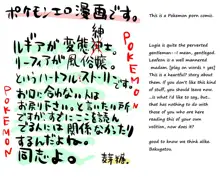 ポケモンエロ漫画です。
ルギアが変態紳士。
リーフィアが風俗嬢。
というハートフルストーリーです。
お口に合わない人は
お戻り下さい。と言いたい所
ですが、すでにここを読んで
でんには関係なかったり
するんだな。
同志よ。
POKEMON
POKEMON
This is a Pokemon porn comic.
Lugia is quite the perverted
gentleman--I mean, gentlegod.
Leafeon is a well mannered
maiden. [play on words + yes]
This is a heartful! story about
them. If you don't like this kind
of stuff, you should leave now.
..is what I'd like to say, but..
that has nothing to do with
those of you who are here
reading this of your own
volition, now does it?
good to know we think alike.
Bakugatou.